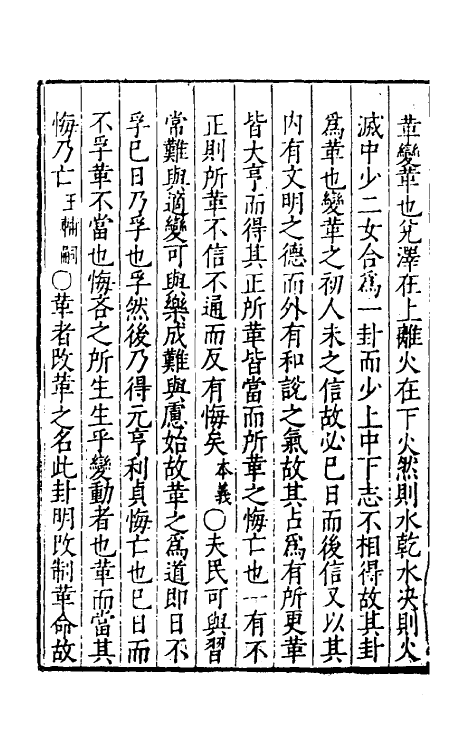 革變革也兌澤在上離火在下火然則水乾水决則火
滅中少二女合爲一卦而少上中下志不相得故其卦
爲革也變革之初人未之信故必巳日而後信又以其
内有文明之德而外有和說之氣故其占爲有所更革
皆大亨而得其正所革皆當而所革之悔亡也一有不
正則所革不信不通而反有悔矣本義○夫民可與習
常難與適變可與樂成難與慮始故革之爲道即日不
孚巳日乃孚也孚然後乃得元亨利貞悔亡也巳日而
不孚革不當也悔吝之所生生乎變動者也革而當其
悔乃亡王輔嗣○革者改革之名此卦明改制革命故